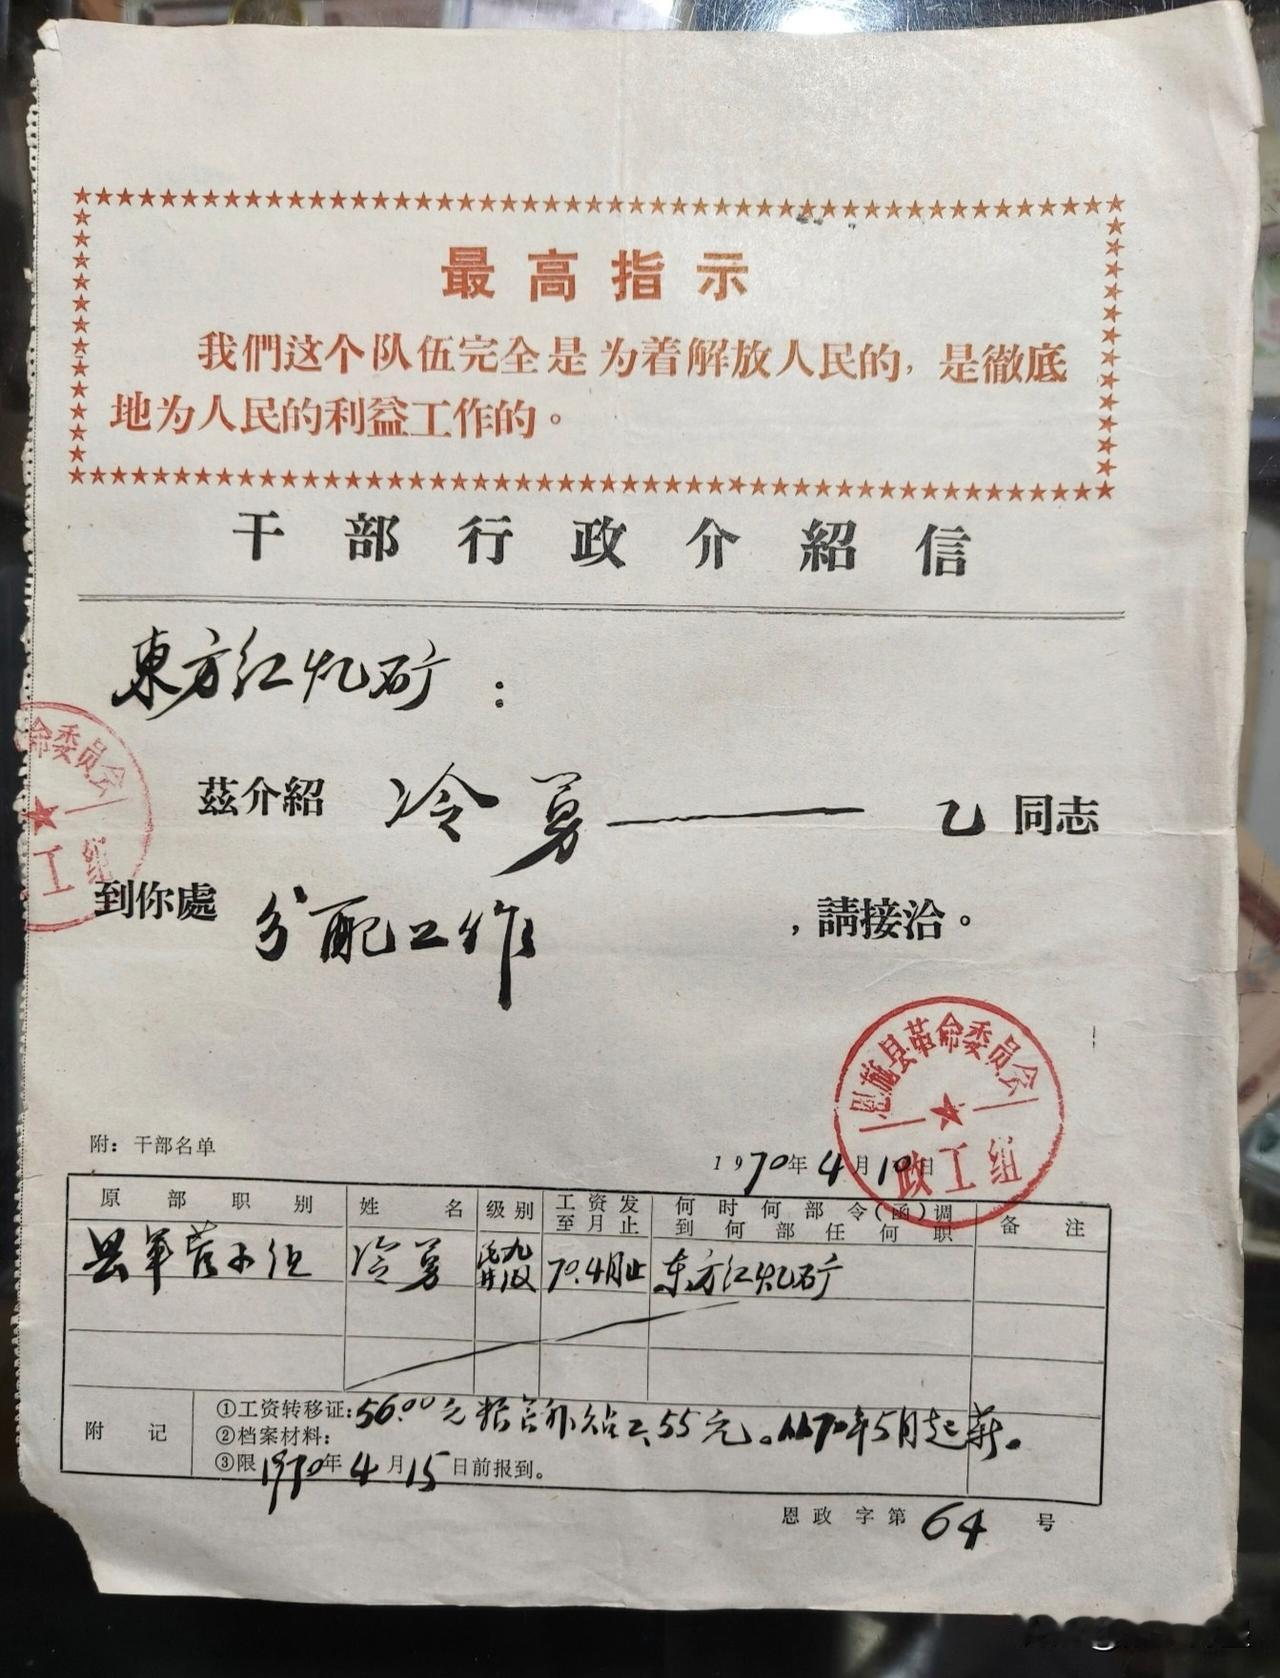 最高指示
我們这个队伍完全是为着解放人民的，是徹底
地为人民的利益工作的。
干部行政介紹信
東方红炕矿：
命委员会
工组
茲介紹 冷勇 乙 同志
到你處 分配工作 ，請接洽。
恩施县革命委员会
政工组
附：干部名单
1970年4月10日
原部职别 姓名 级别 工资发至月止 何时何部令(函)调到何部任何职 备注
县军管小组 冷勇 70.4月止 东方红炕矿
附记
①工资转移证：56.00元 粮 补贴2.55元。从70年5月起薪。
②档案材料：
③限1970年4月15日前报到。
恩政字第64号